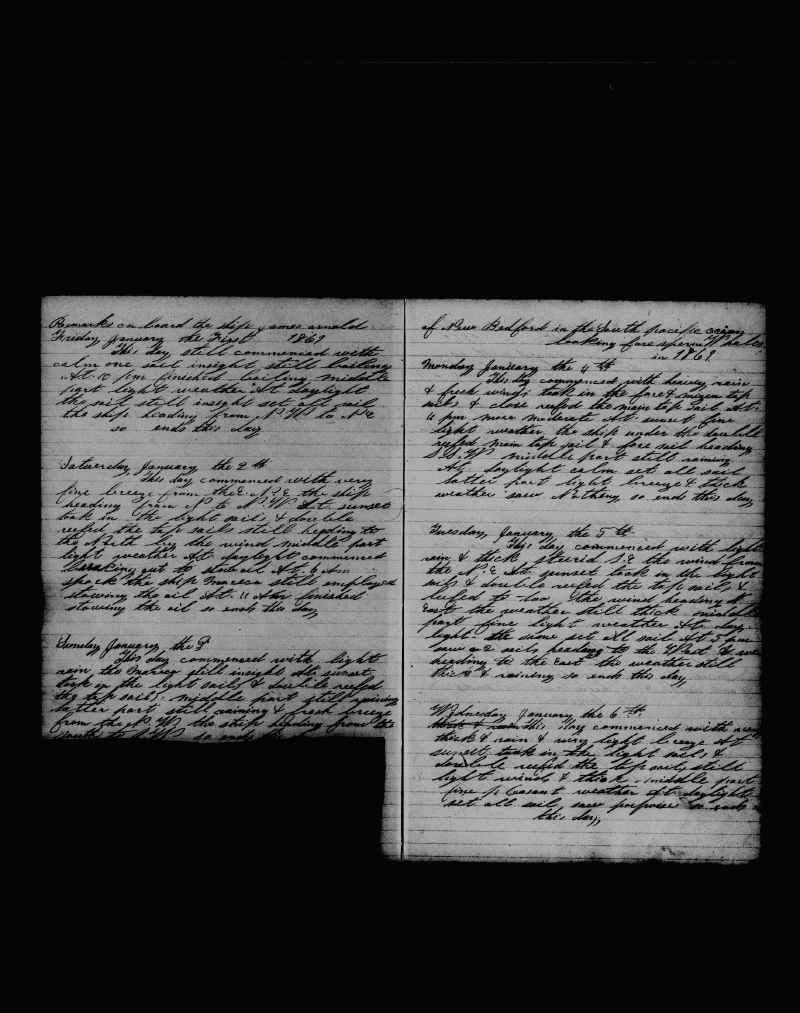 Remarks on board the ship James arnold
Friday January the First 1869
This day still commenced with
calm one sail insight still boiling
At pm finished boiling middle
part light weather At daylight
the sail still insight set all sail
the ship heading from N W to N E
so ends this day
Saturday January the 2 th
This day commenced with very
fine breeze from the N.E the ship
heading from N to N.W At sunset
took in the light sails & double
reefed the top sails still heading to
the by the wind middle part
light weather At daylight commenced
breaking out to stow oil At 6 Am
spoke the ship still employed
stowing the oil At 11 Am finished
stowing the oil so ends this day
Sunday January the 3
This day commenced with light
rain the still insight At sunset
took in the light sails & double reefed
the top sails middle part still raining
latter part still raining & fresh breeze
from the N.W the ship heading from the
south to so ends
of New Bedford in the South pacific ocian
looking fore sperm Whales
in 1869
Monday January the 4 th
This day commenced with heavy rain
& fresh winds took in the fore & mizen top
sails & close reefed the main top sail At
4 pm more moderate At sunset fine
light weather the ship under the double
reefed main top sail & fore sail heading
S.S.W middle part still raining
At daylight calm set all sail
latter part light breeze & thick
weather saw Nothing so ends this day
Tuesday January the 5 th
This day commenced with light
rain & thick steerid S.E the wind from
the N.E At sunset took in the light
sails & double reefed the top sails &
luffed to the wind heading
East the weather still thick middle
part fine light weather At day
light the same set All sail At 5 pm
saw 2 sails heading to the West & we
heading to the East the weather still
thick & raining so ends this day
Wednesday January the 6 th
this day commenced with
thick & rain & very light breeze At
sunset took in the light sails &
double reefed the top sails still
light winds & thick middle part
fine pleasant weather At daylight
set all sail saw porpoise so ends
this day